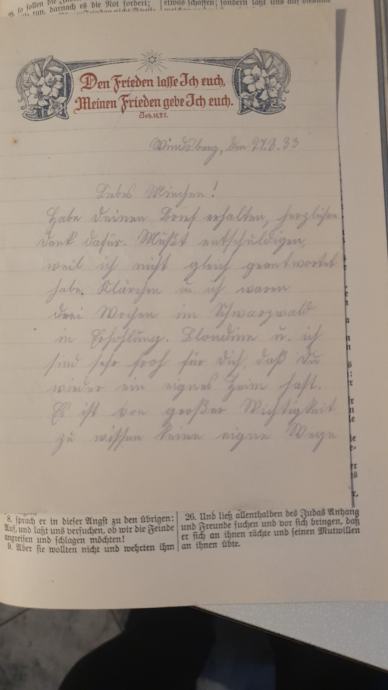 Den Frieden lasse Ich euch,
Meinen Frieden gebe Ich euch.
Joh. 14,27.
Windsberg, den 27.8.33
Liebes Minchen!
Habe deinen Brief erhalten, herzlichen
dank dafür. Mußt entschuldigen,
weil ich nicht gleich geantwortet
habe. Klärchen u. ich waren
drei Wochen im Schwarzwald
in Erholung. Blondine u. ich
sind sehr froh für dich, daß Du
wieder ein eignes Heim hast.
Es ist von großer Wichtigkeit
zu wissen keine eigne Wege
8. sprach er in dieser Angst zu den übrigen:
Auf, und laßt uns versuchen, ob wir die Feinde
angreifen und schlagen möchten!
9. Aber sie wollten nicht und wehrten ihm
26. Und ließ allenthalben des Judas Anhang
und Freunde suchen und vor sich bringen, daß
er sich an ihnen rächte und seinen Mutwillen
an ihnen übte.